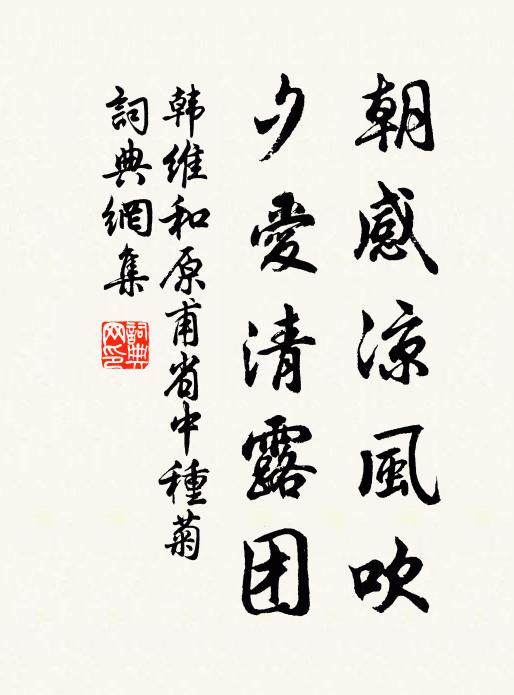 朝感凉風吹
夕愛清露团
韩維和原甫省中種菊
詞典網集
詞典網印